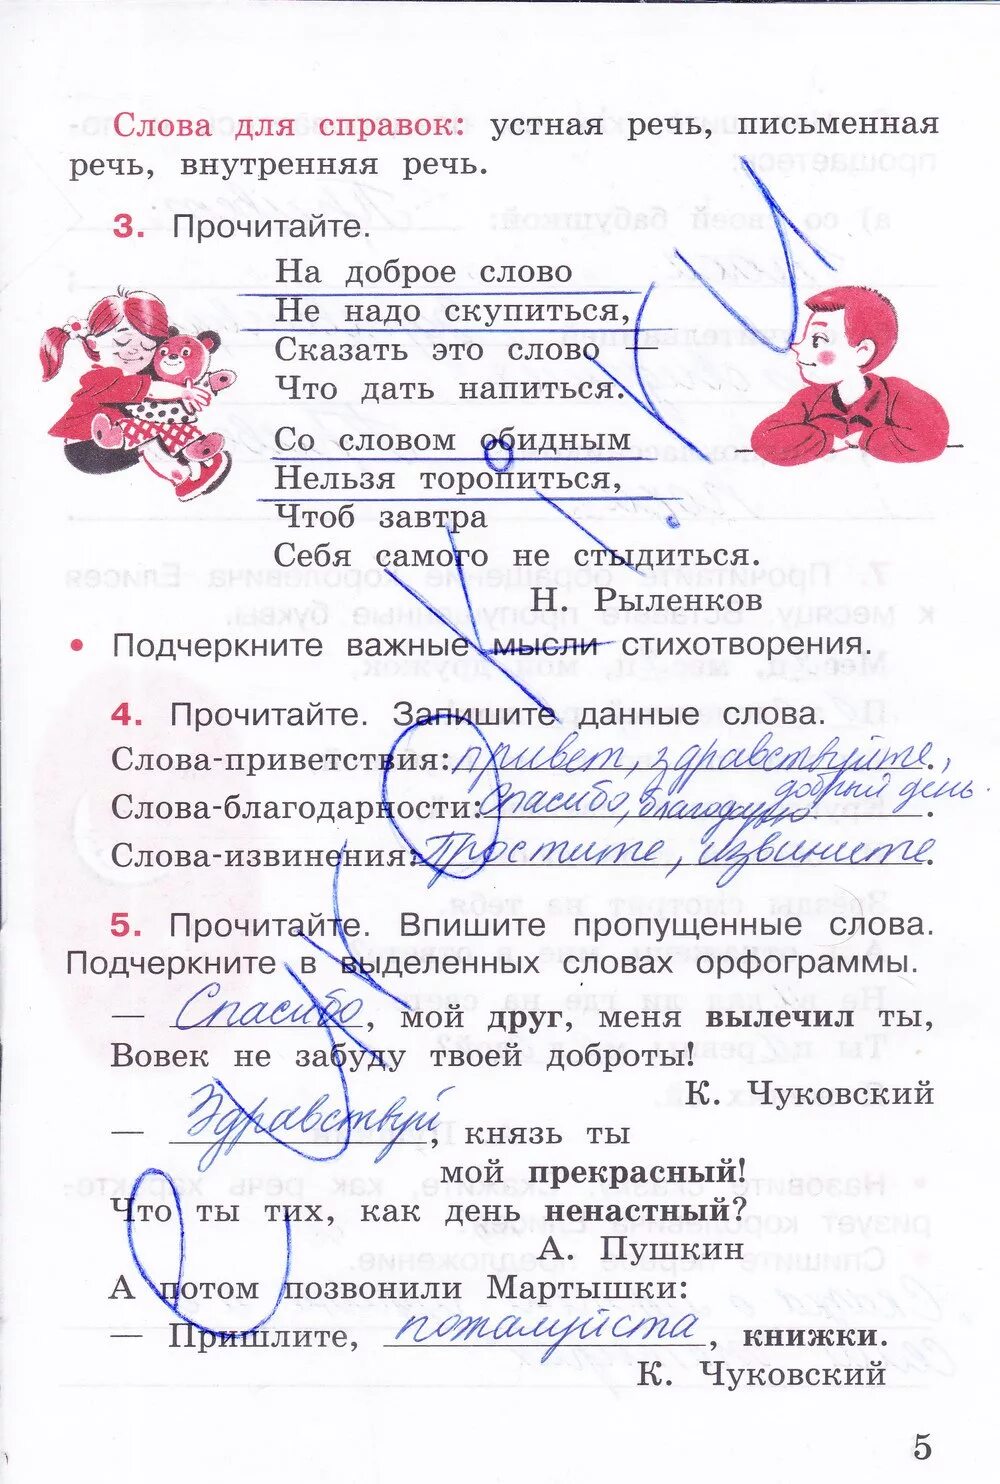 Слова для справок: устная речь, письменная
речь, внутренняя речь.
3. Прочитайте.
На доброе слово
Не надо скупиться,
Сказать это слово —
Что дать напиться.
Со словом обидным
Нельзя торопиться,
Чтоб завтра
Себя самого не стыдиться.
Н. Рыленков
• Подчеркните важные мысли стихотворения.
4. Прочитайте. Запишите данные слова.
Слова-приветствия: привет, здравствуйте,
добрый день.
Слова-благодарности: Спасибо, благодарю.
Слова-извинения: Простите, извините.
5. Прочитайте. Впишите пропущенные слова.
Подчеркните в выделенных словах орфограммы.
— Спасибо, мой друг, меня вылечил ты,
Вовек не забуду твоей доброты!
К. Чуковский
— Здравствуй, князь ты
мой прекрасный!
Что ты тих, как день ненастный?
А. Пушкин
А потом позвонили Мартышки:
— Пришлите, пожалуйста, книжки.
К. Чуковский
5